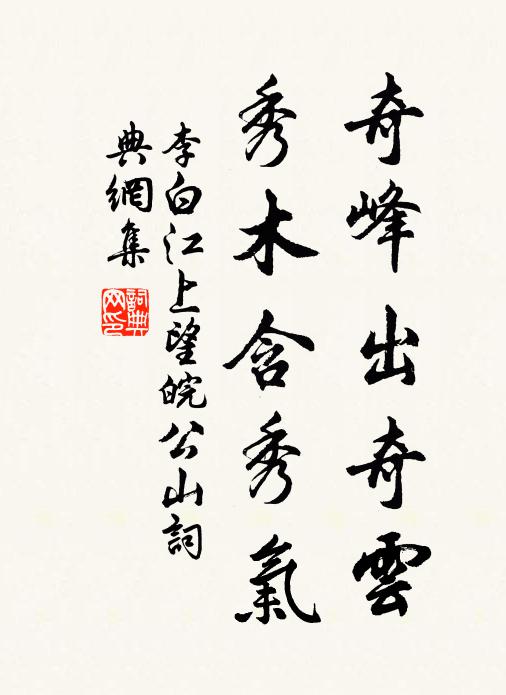 奇峰出奇雲
秀木含秀氣
李白江上望皖公山詞
典網集
詞典網印